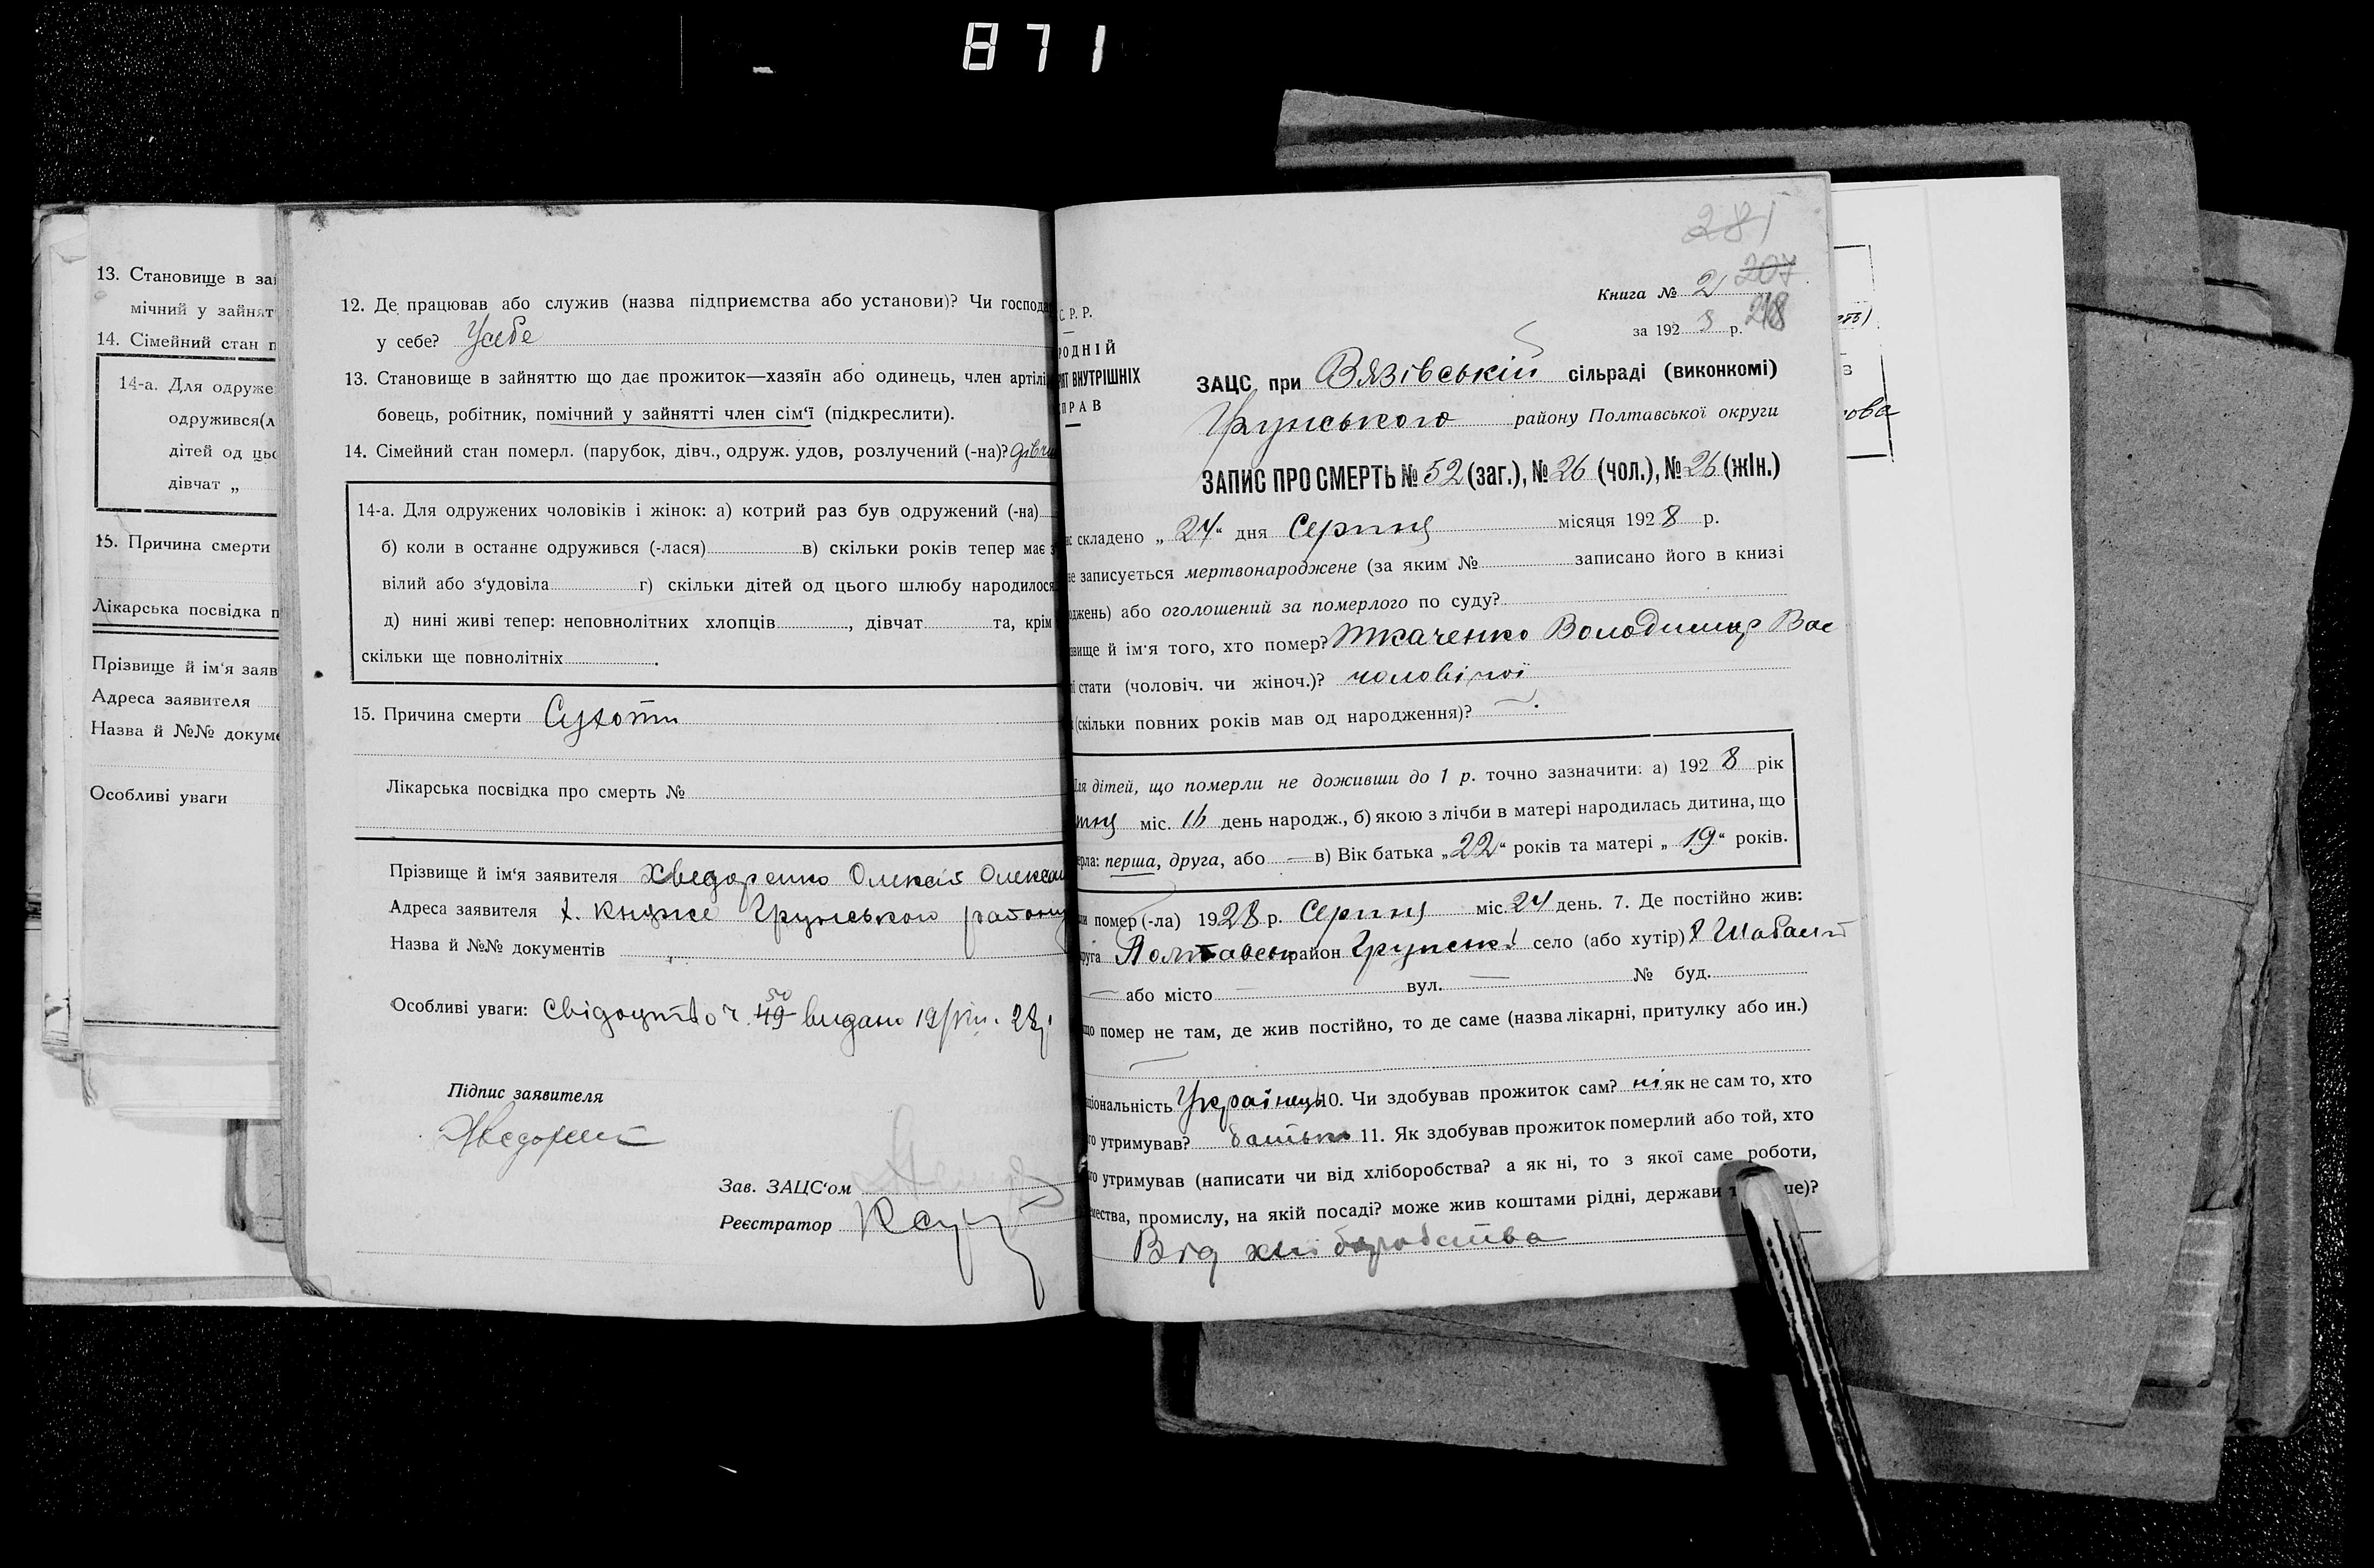 871
13. Становище в зай
мічний у зайнят
14. Сімейний стан п
14-а. Для одруже
одружився(л
дітей од цьо
дівчат „
15. Причина смерти
Лікарська посвідка п
Прізвище й ім'я заяв
Адреса заявителя
Назва й №№ докуме
Особливі уваги
12. Де працював або служив (назва підприємства або установи)? Чи господар
у себе? Усебе
13. Становище в зайняттю що дає прожиток—хазяїн або одинець, член артілі
бовець, робітник, помічний у зайнятті член сім'ї (підкреслити).
14. Сімейний стан померл. (парубок, дівч., одруж. удов, розлучений (-на)? дівчи
14-а. Для одружених чоловіків і жінок: а) котрий раз був одружений (-на)
б) коли в останнє одружився (-лася) в) скільки років тепер має з
вілий або з'удовіла г) скільки дітей од цього шлюбу народилося
д) нині живі тепер: неповнолітних хлопців, дівчат та, крім
скільки ще повнолітніх.
15. Причина смерти Сухоти
Лікарська посвідка про смерть №
Прізвище й ім'я заявителя Хведоренко Олексій Олексан
Адреса заявителя х. Княже Грунського району
Назва й №№ документів
Особливі уваги: Свідоцтво ч. 49 50 видано 19/VIII. 28 р
Підпис заявителя
Хведорен
Зав. ЗАЦС'ом
Реєстратор
281
207
218
Книга № 2
за 192 8 р.
С. Р. Р.
РОДНІЙ
РІЯТ ВНУТРІШНІХ
ПРАВ
ЗАЦС при Вязівській сільраді (виконкомі)
Грунського району Полтавської округи
ЗАПИС ПРО СМЕРТЬ № 52 (заг.), № 26 (чол.), № 26 (жін.)
складено „24“ дня Серпня місяця 1928 р.
не записується мертвонароджене (за яким № записано його в книзі
оджень) або оголошений за померлого по суду?
звище й ім'я того, хто помер? Ткаченко Володимир Вас
стати (чоловіч. чи жіноч.)? чоловічої
(скільки повних років мав од народження)? —
Для дітей, що померли не доживши до 1 р. точно зазначити: а) 192 8 рік
тня міс. 16 день народж., б) якою з лічби в матері народилась дитина, що
ерла: перша, друга, або — в) Вік батька „22“ років та матері „19“ років.
помер (-ла) 1928 р. Серпня міс. 24 день. 7. Де постійно жив:
руга Полтавськ район Грунськ. село (або хутір) х
— або місто — вул. — № буд.
що помер не там, де жив постійно, то де саме (назва лікарні, притулку або ин.)
ціональність Українець 10. Чи здобував прожиток сам? ні як не сам то, хто
го утримував? батько 11. Як здобував прожиток померлий або той, хто
го утримував (написати чи від хліборобства? а як ні, то з якої саме роботи,
мества, промислу, на якій посаді? може жив коштами рідні, держави т ше)?
Від хліборобства